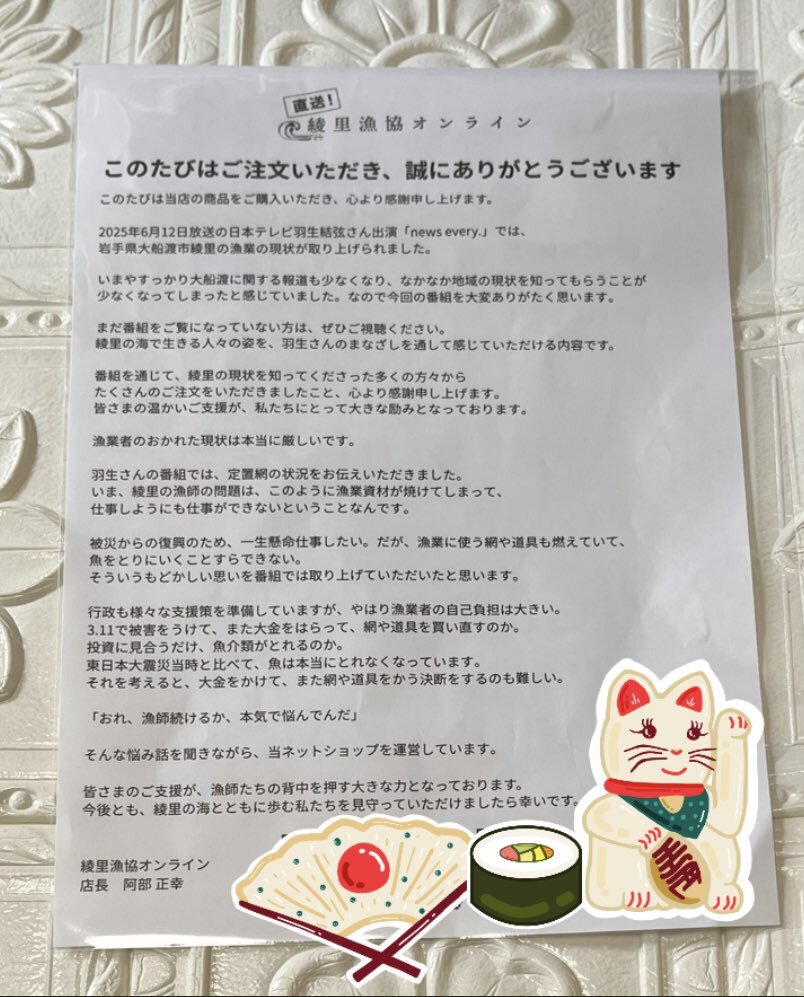 直送！
綾里漁協オンライン
このたびはご注文いただき、誠にありがとうございます
このたびは当店の商品をご購入いただき、心より感謝申し上げます。
2025年6月12日放送の日本テレビ羽生結弦さん出演「news every.」では、
岩手県大船渡市綾里の漁業の現状が取り上げられました。
いまやすっかり大船渡に関する報道も少なくなり、なかなか地域の現状を知ってもらうことが
少なくなってしまったと感じていました。なので今回の番組を大変ありがたく思います。
まだ番組をご覧になっていない方は、ぜひご視聴ください。
綾里の海で生きる人々の姿を、羽生さんのまなざしを通して感じていただける内容です。
番組を通じて、綾里の現状を知ってくださった多くの方々から
たくさんのご注文をいただきましたこと、心より感謝申し上げます。
皆さまの温かいご支援が、私たちにとって大きな励みとなっております。
漁業者のおかれた現状は本当に厳しいです。
羽生さんの番組では、定置網の状況をお伝えいただきました。
いま、綾里の漁師の問題は、このように漁業資材が焼けてしまって、
仕事しようにも仕事ができないということなんです。
被災からの復興のため、一生懸命仕事したい。だが、漁業に使う網や道具も燃えていて、
魚をとりにいくことすらできない。
そういうもどかしい思いを番組では取り上げていただいたと思います。
行政も様々な支援策を準備していますが、やはり漁業者の自己負担は大きい。
3.11で被害をうけて、また大金をはらって、網や道具を買い直すのか。
投資に見合うだけ、魚介類がとれるのか。
東日本大震災当時と比べて、魚は本当にとれなくなっています。
それを考えると、大金をかけて、また網や道具をかう決断をするのも難しい。
「おれ、漁師続けるか、本気で悩んでんだ」
そんな悩み話を聞きながら、当ネットショップを運営しています。
皆さまのご支援が、漁師たちの背中を押す大きな力となっております。
今後とも、綾里の海とともに歩む私たちを見守っていただけましたら幸いです。
綾里漁協オンライン
店長　阿部 正幸